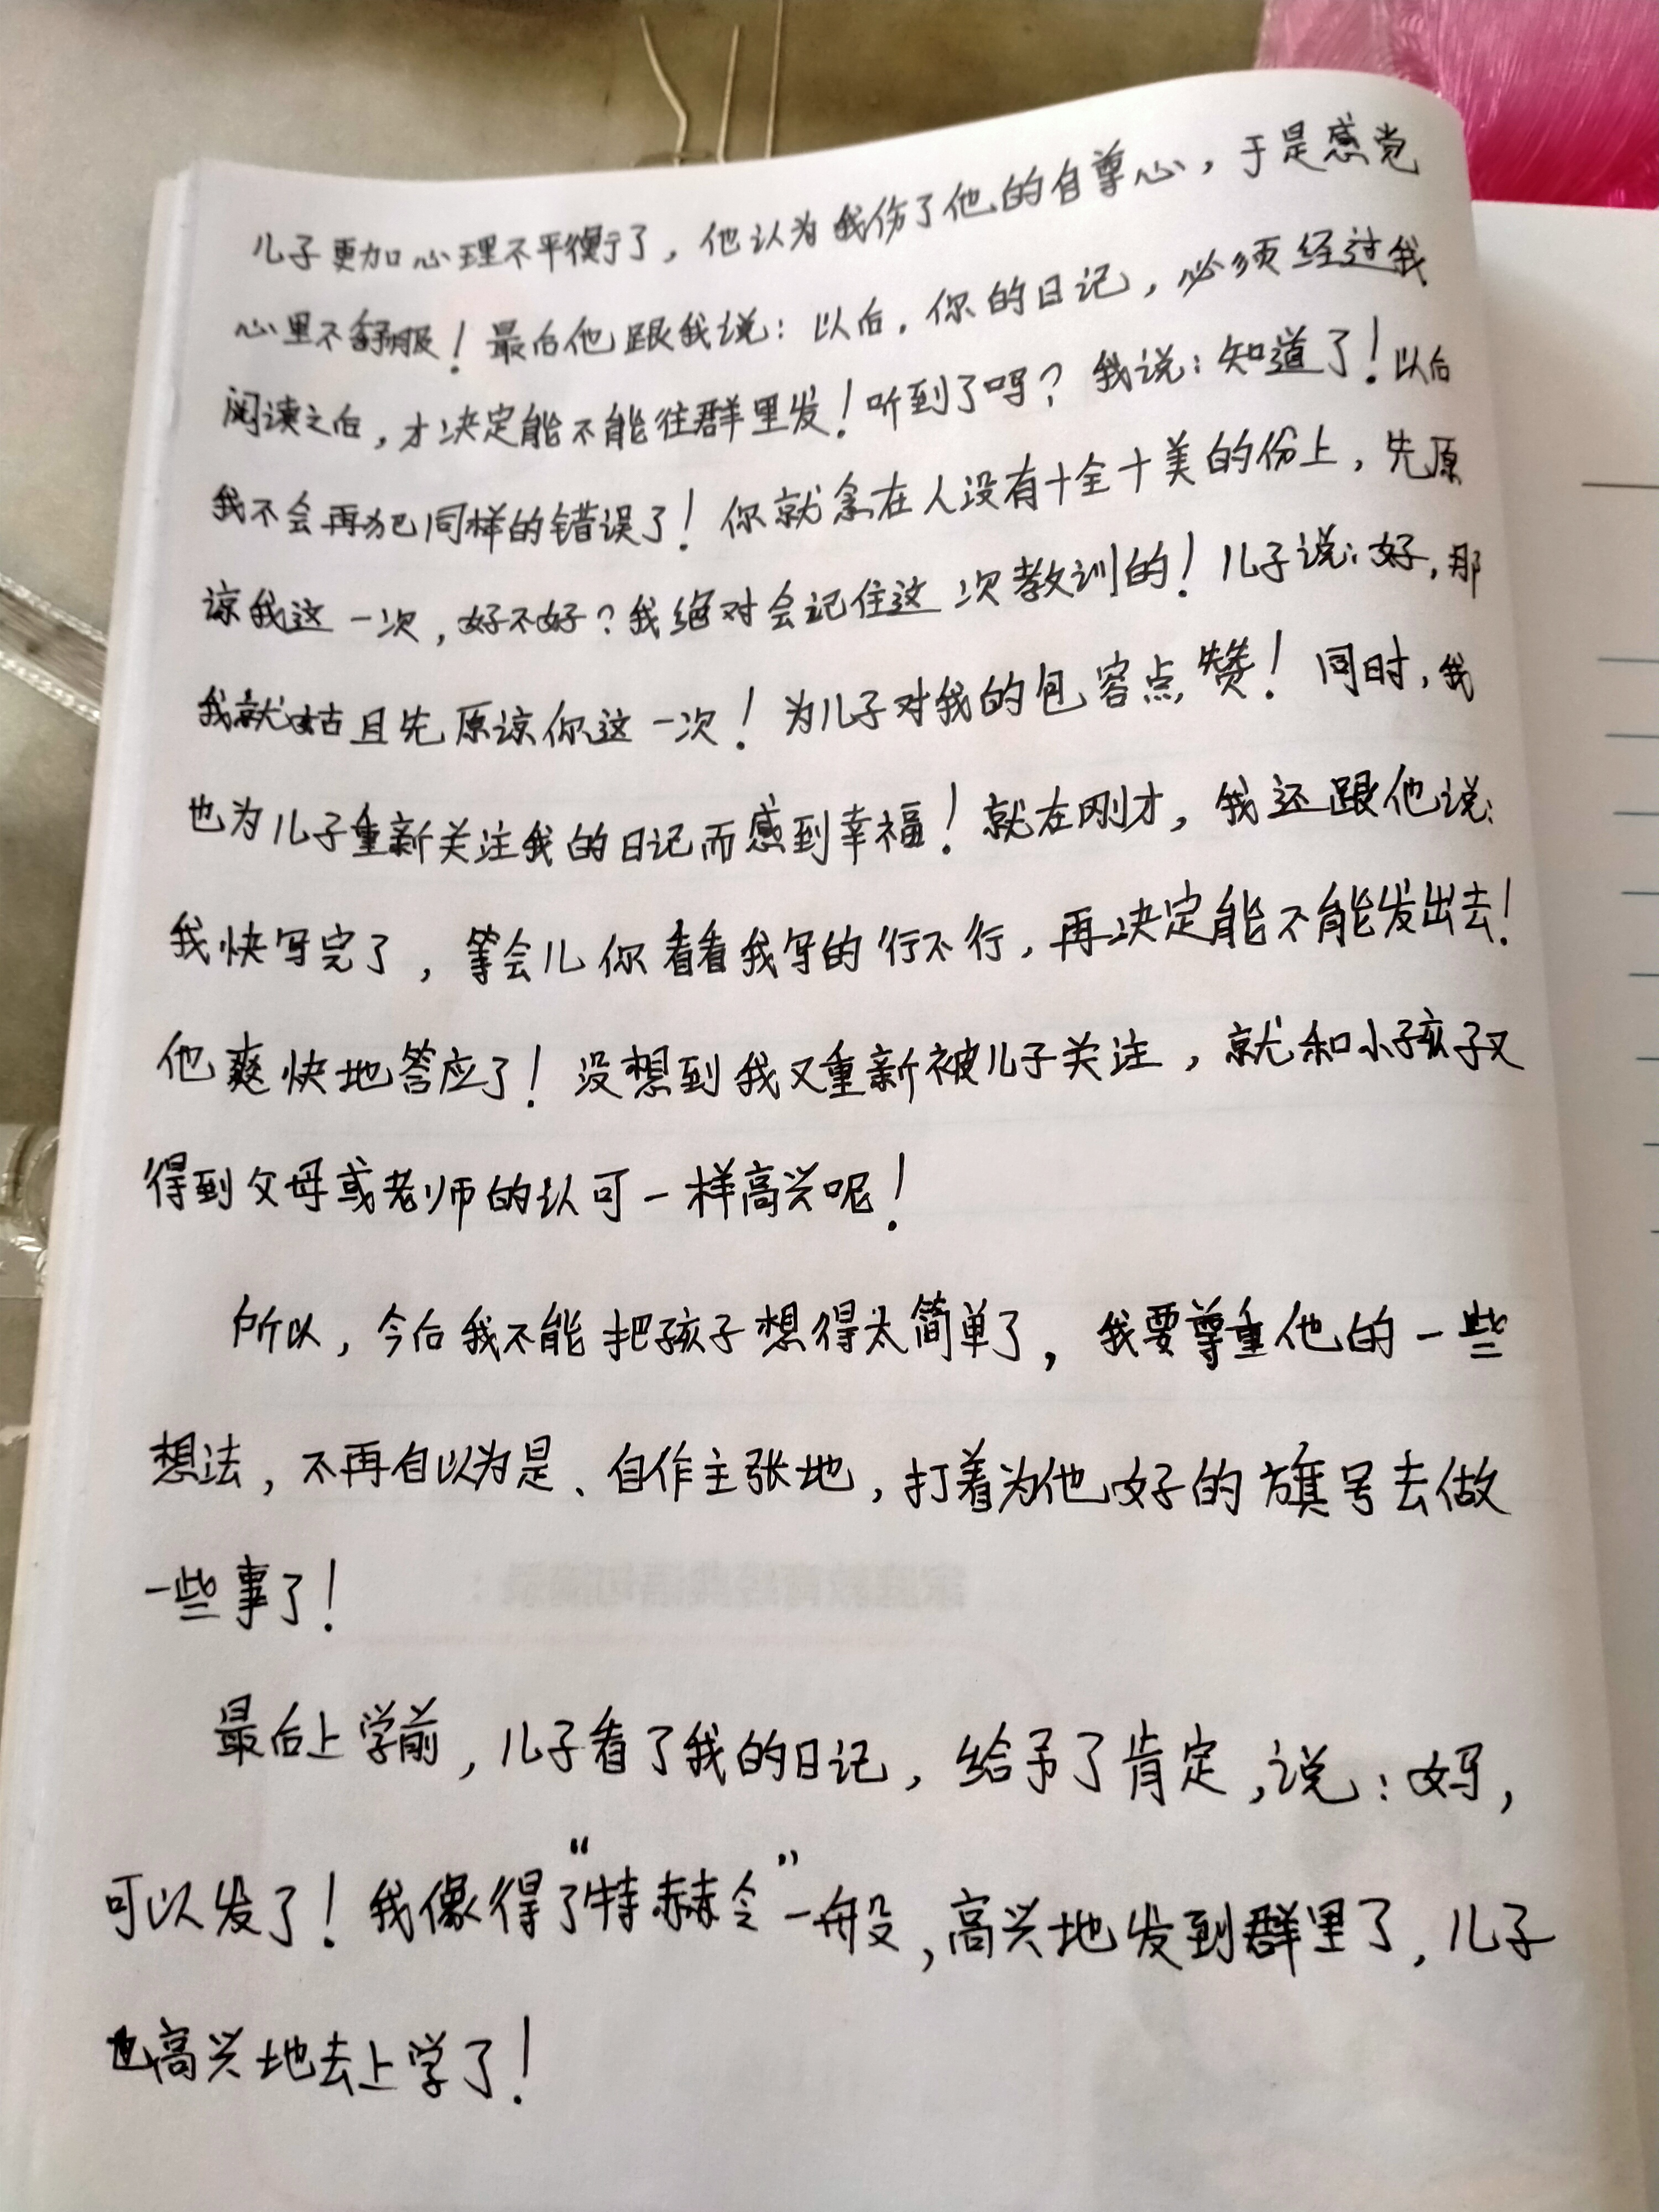 儿子更加心理不平衡了，他认为我伤了他的自尊心，于是感觉
心里不舒服！最后他跟我说：以后，你的日记，必须经过我
阅读之后，才决定能不能往群里发！听到了吗？我说：知道了！以后
我不会再犯同样的错误了！你就拿在人没有十全十美的份上，先原
谅我这一次，好不好？我绝对会记住这一次教训的！儿子说：好，那
我就姑且先原谅你这一次！为儿子对我的包容点赞！同时，我
也为儿子重新关注我的日记而感到幸福！就在刚才，我还跟他说：
我快写完了，等会儿你看看我写的行不行，再决定能不能发出去！
他爽快地答应了！没想到我又重新被儿子关注，就和小孩子又
得到父母或老师的认可一样高兴呢！
所以，今后我不能把孩子想得太简单了，我要尊重他的一些
想法，不再自以为是、自作主张地，打着为他好的旗号去做
一些事了！
最后上学前，儿子看了我的日记，给予了肯定，说：妈，
可以发了！我像得了“特赦令”一般，高兴地发到群里了，儿子
也高兴地去上学了！